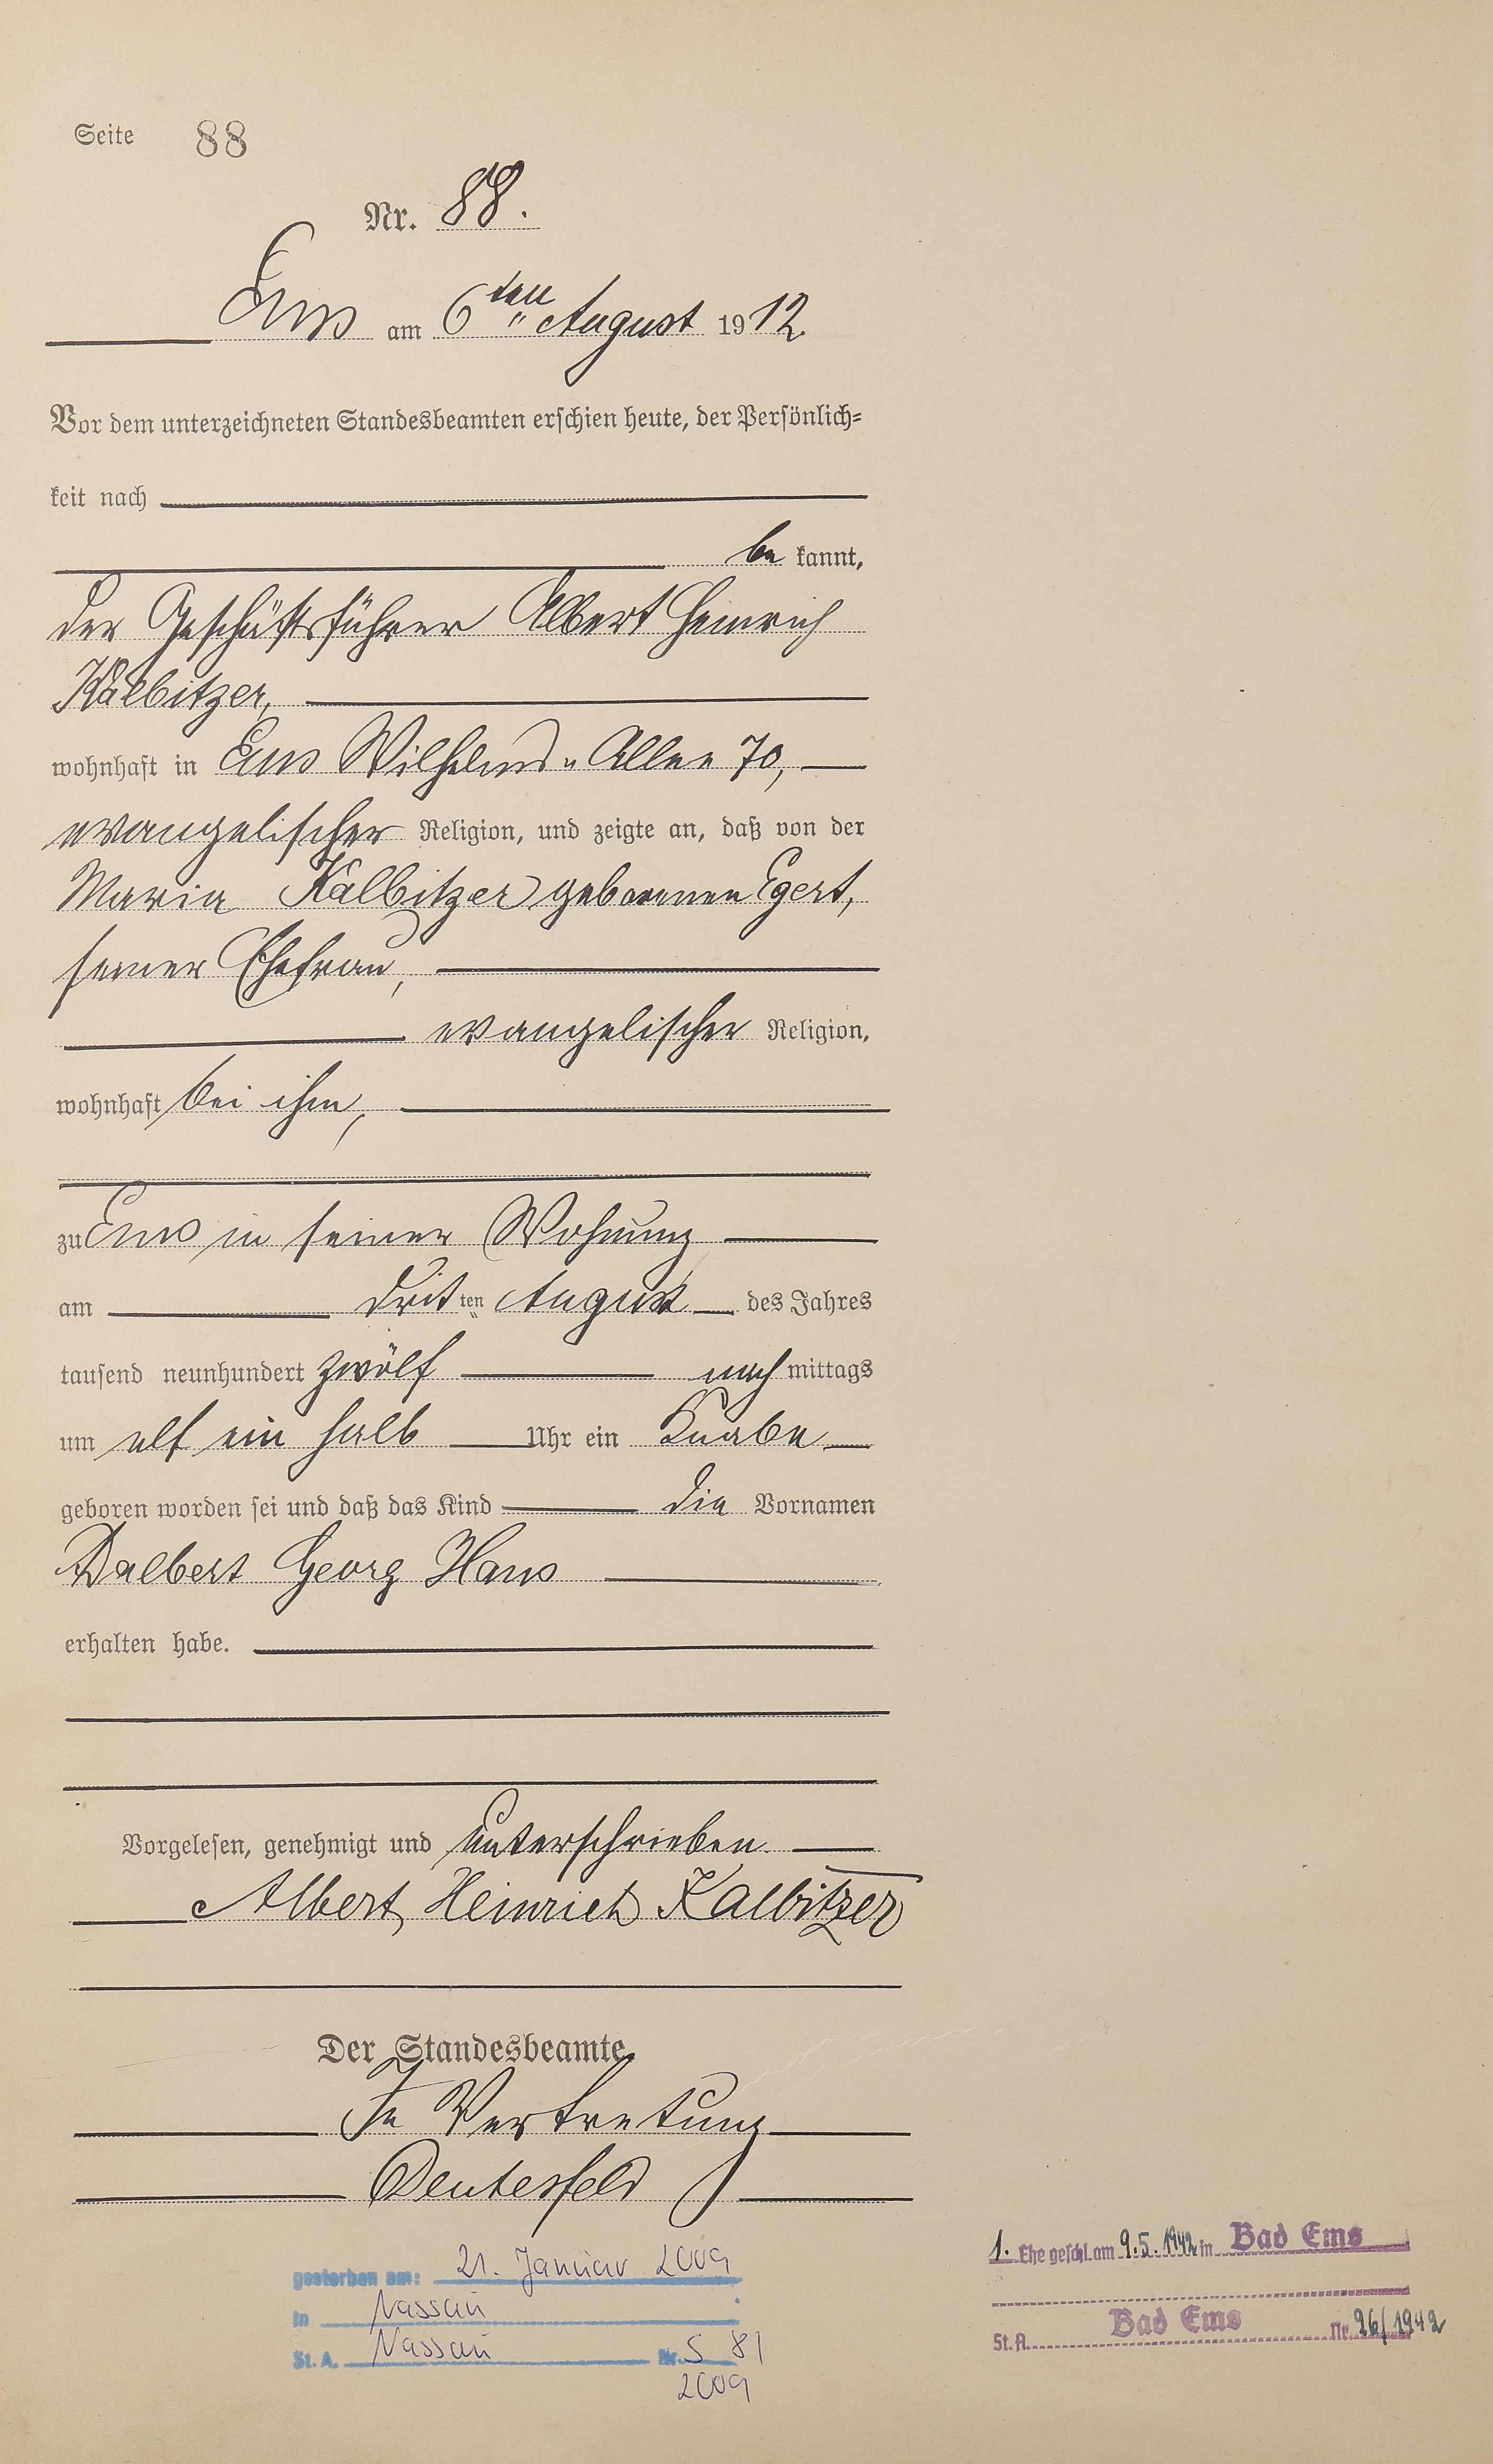 Seite 88
Nr. 88.
Ems am 6ten August 1912.
Vor dem unterzeichneten Standesbeamten erschien heute, der Persönlich=
keit nach
be kannt,
der Geschäftsführer Albert Heinrich
Kalbitzer,
wohnhaft in Ems Wilhelms-Allee 70,
evangelischer Religion, und zeigte an, daß von der
Maria Kalbitzer geborenen Egert,
seiner Ehefrau,
evangelischer Religion,
wohnhaft bei ihm,
zu Ems in seiner Wohnung
am dritten August des Jahres
tausend neunhundert zwölf nachmittags
um elf ein halb Uhr ein Knabe
geboren worden sei und daß das Kind die Vornamen
Dalbert Georg Hans
erhalten habe.
Vorgelesen, genehmigt und unterschrieben
Albert Heinrich Kalbitzer
Der Standesbeamte
In Vertretung
gestorben am: 21. Januar 2009
in Nassau
St. A. Nassau Nr. S 81
2009
1. Ehe geschl. am 9.5.1942 in Bad Ems
St. A. Bad Ems Nr. 26/1942